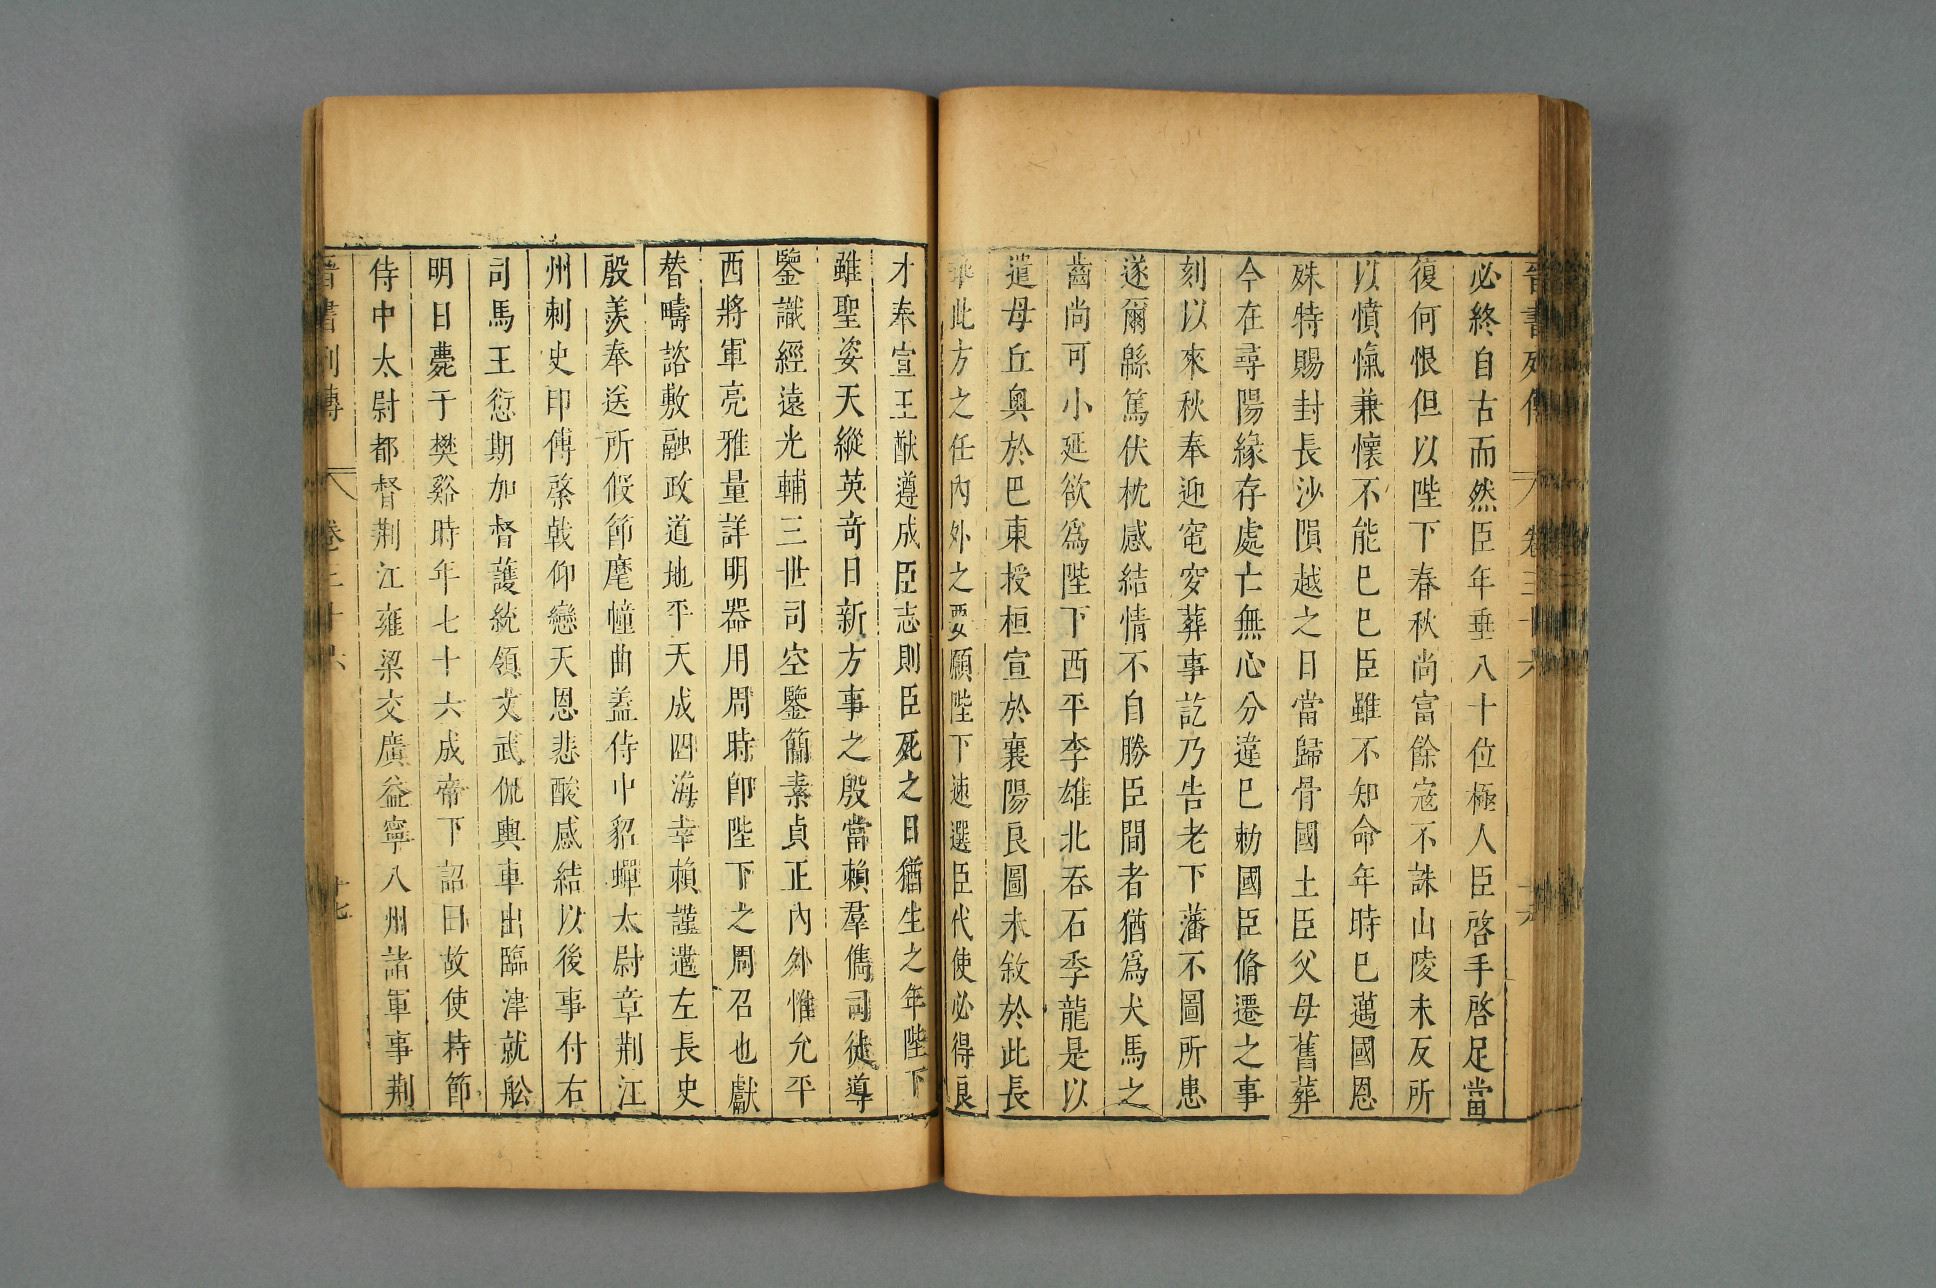 晉書列傳 卷三十六 十六
必終自古而然臣年垂八十位極人臣啓手啓足當
復何恨但以陛下春秋尚富餘寇不誅山陵未反所
以憤愾兼懷不能已已臣雖不知命年時已邁國恩
殊特賜封長沙隕越之日當歸骨國土臣父母舊葬
今在尋陽緣存處亡無心分違已勅國臣脩遷之事
刻以來秋奉迎窀穸葬事訖乃告老下藩不圖所患
遂爾緜篤伏枕感結情不自勝臣間者猶爲犬馬之
齒尚可小延欲爲陛下西平李雄北吞石季龍是以
遣毋丘奧於巴東授桓宣於襄陽良圖未敘於此長
乖此方之任內外之要願陛下速選臣代使必得良
才奉宣王猷遵成臣志則臣死之日猶生之年陛下
雖聖姿天縱英奇日新方事之殷當賴羣儁司徒導
鑒識經遠光輔三世司空鑒簡素貞正內外惟允平
西將軍亮雅量詳明器用周時卽陛下之周召也獻
替疇諮敷融政道地平天成四海幸賴謹遣左長史
殷羨奉送所假節麾幢曲蓋侍中貂蟬太尉章荆江
州刺史印傳棨戟仰戀天恩悲酸感結以後事付右
司馬王愆期加督護統領文武侃輿車出臨津就船
明日薨于樊谿時年七十六成帝下詔曰故使持節
侍中太尉都督荆江雍梁交廣益寧八州諸軍事荆
晉書列傳 卷三十六 十七